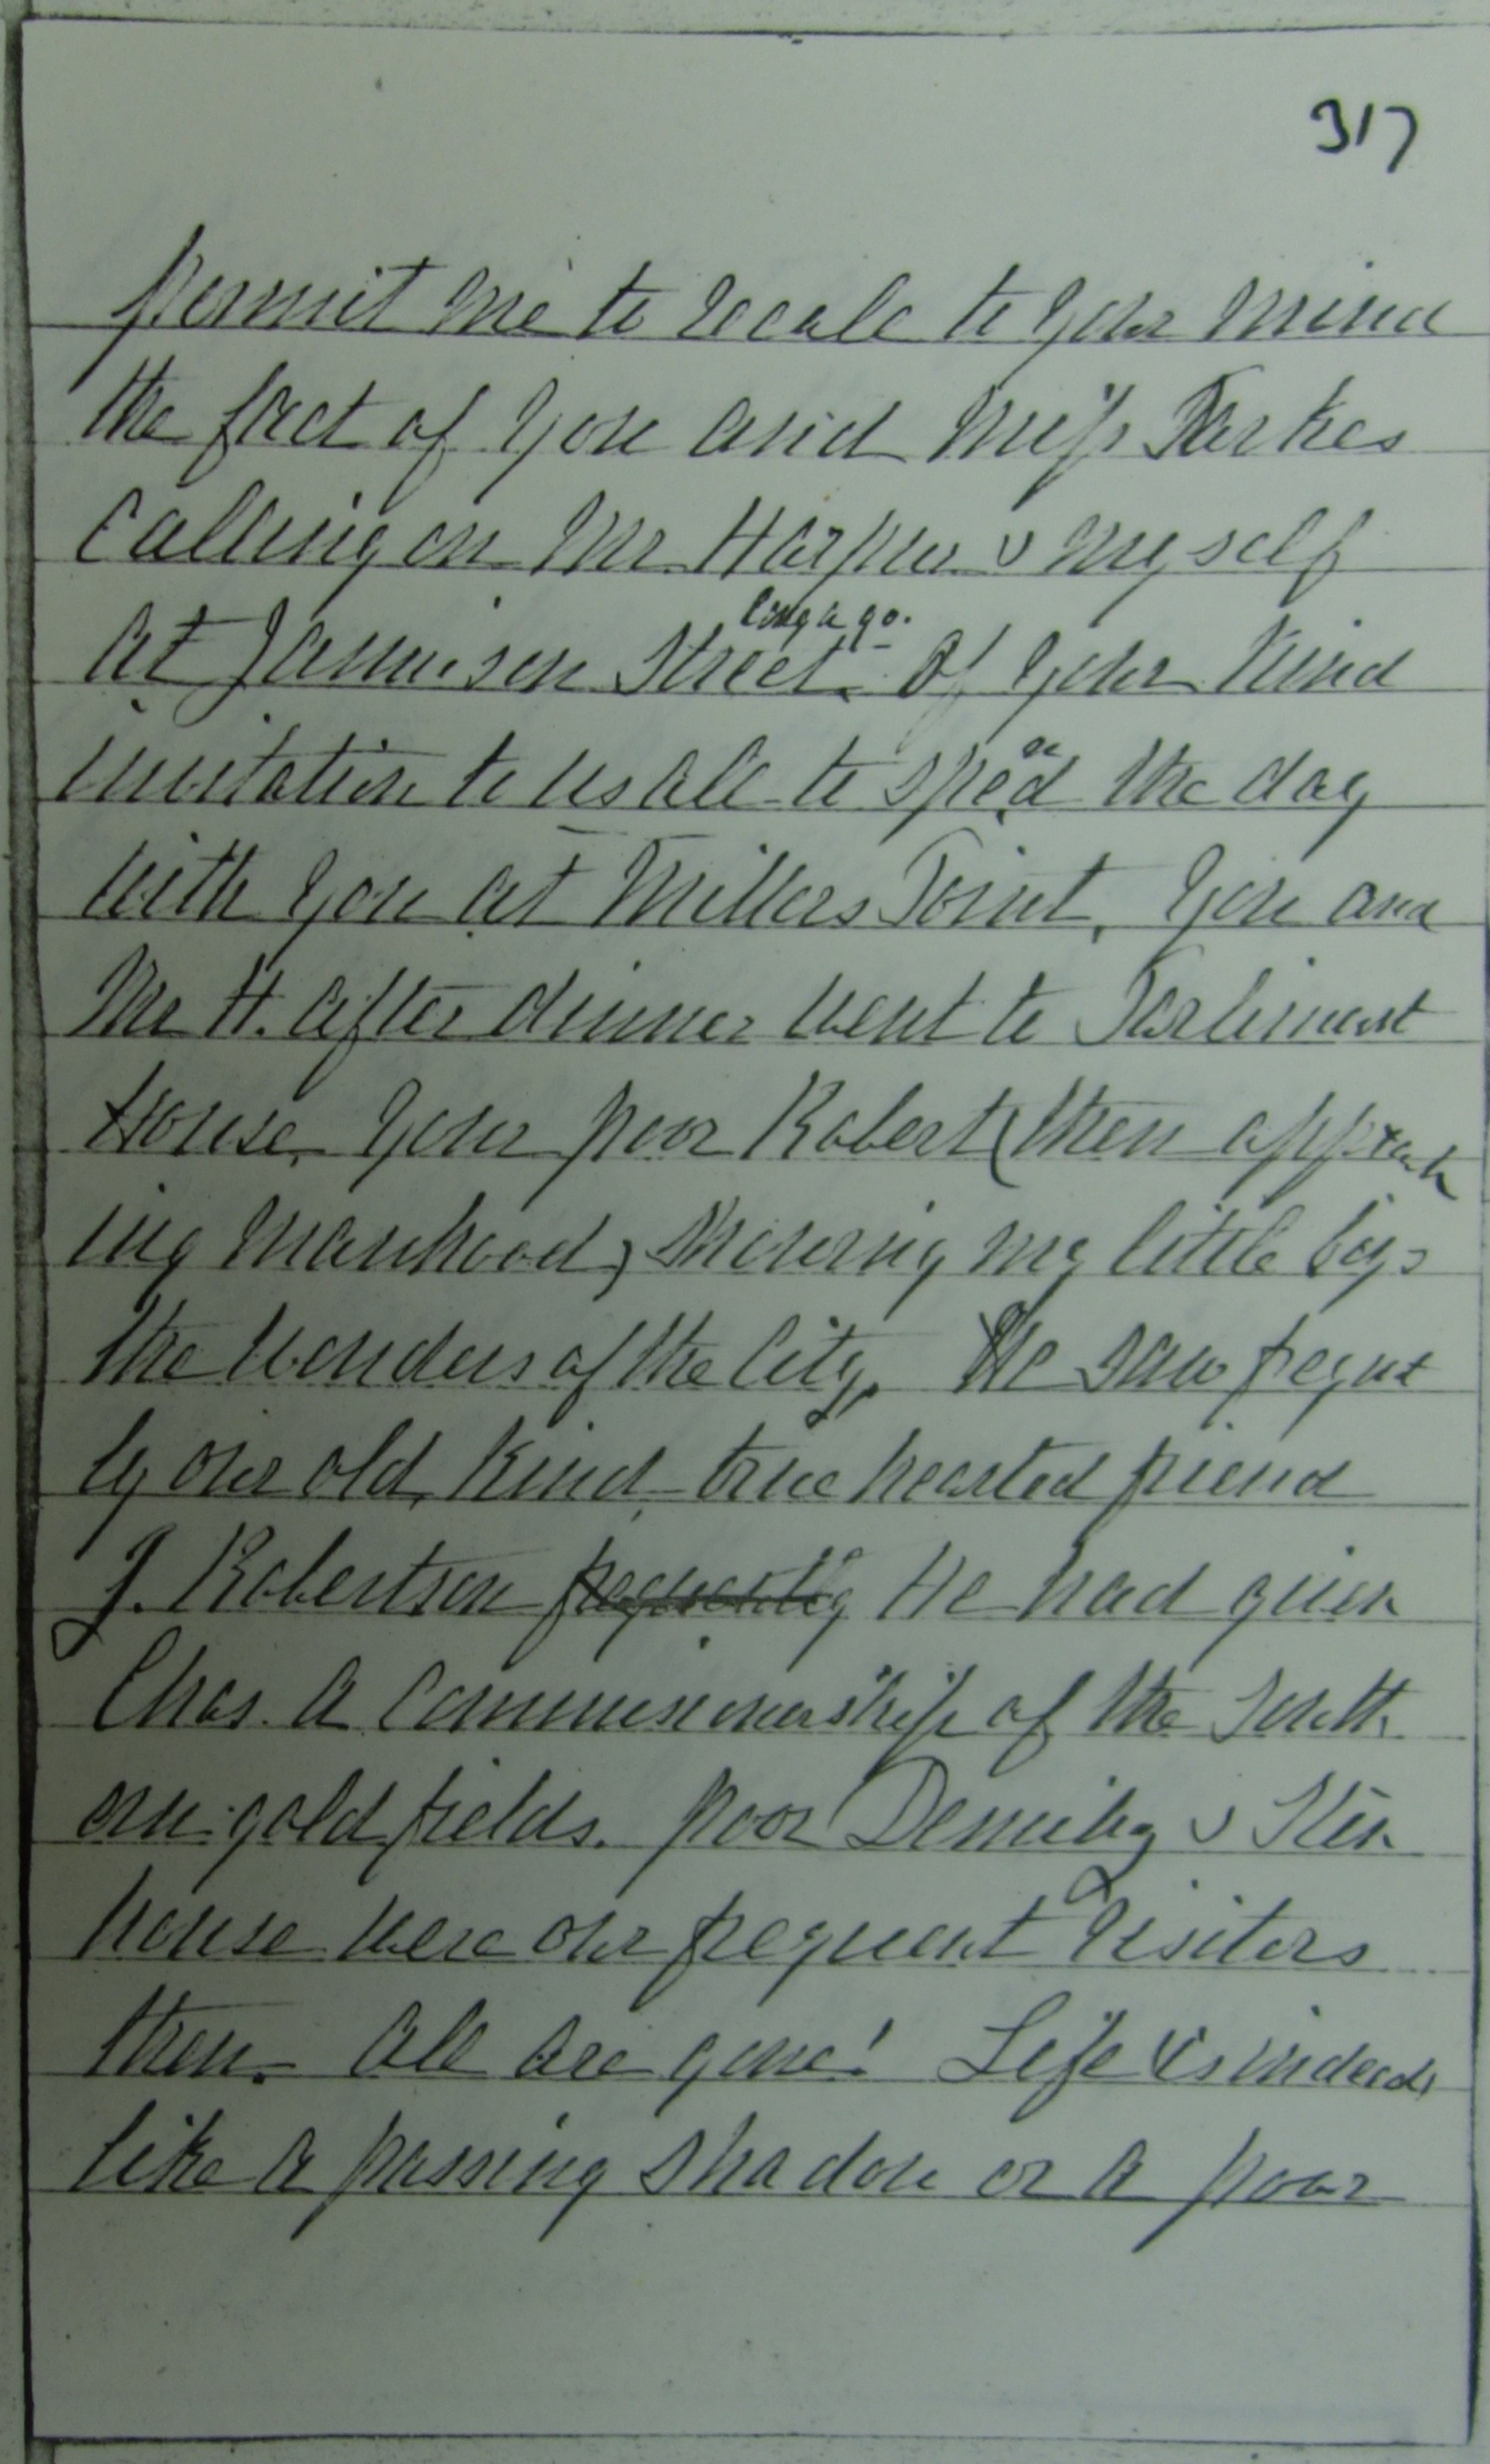 317
permit me to recale to your mind
the fact of you and Miss Parkes
calling on Mr. Harpur & myself
at Jammison Street long ago. Of your kind
invitation to us all to sped the day
with you at Millers Point, you and
Mr H. after dinner went to Parliment
House. Your poor Robert (then approach
ing manhood) showing my little boys
the wonders of the City. We saw frequt
ly our old, kind true hearted friend
J. Robertson frequently He had given
Chas. a Commissionership of the South
ern gold fields. poor Deniehy & Sten
house were our frequent visitors
then. All are gone! Life is indeed
like a passing shadow or a poor